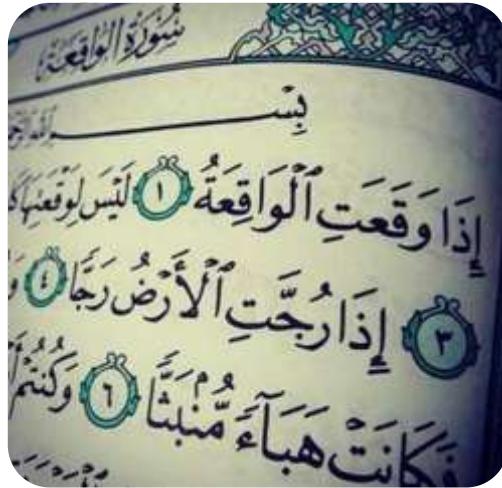 سُورَةُ الْوَاقِعَةِ
بِسْمِ اللَّهِ
إِذَا وَقَعَتِ ٱلْوَاقِعَةُ ١ لَيْسَ لِوَقْعَتِهَا
٣ إِذَا رُجَّتِ ٱلْأَرْضُ رَجًّا ٤
فَكَانَتْ هَبَآءً مُّنۢبَثًّا ٦ وَكُنتُمْ